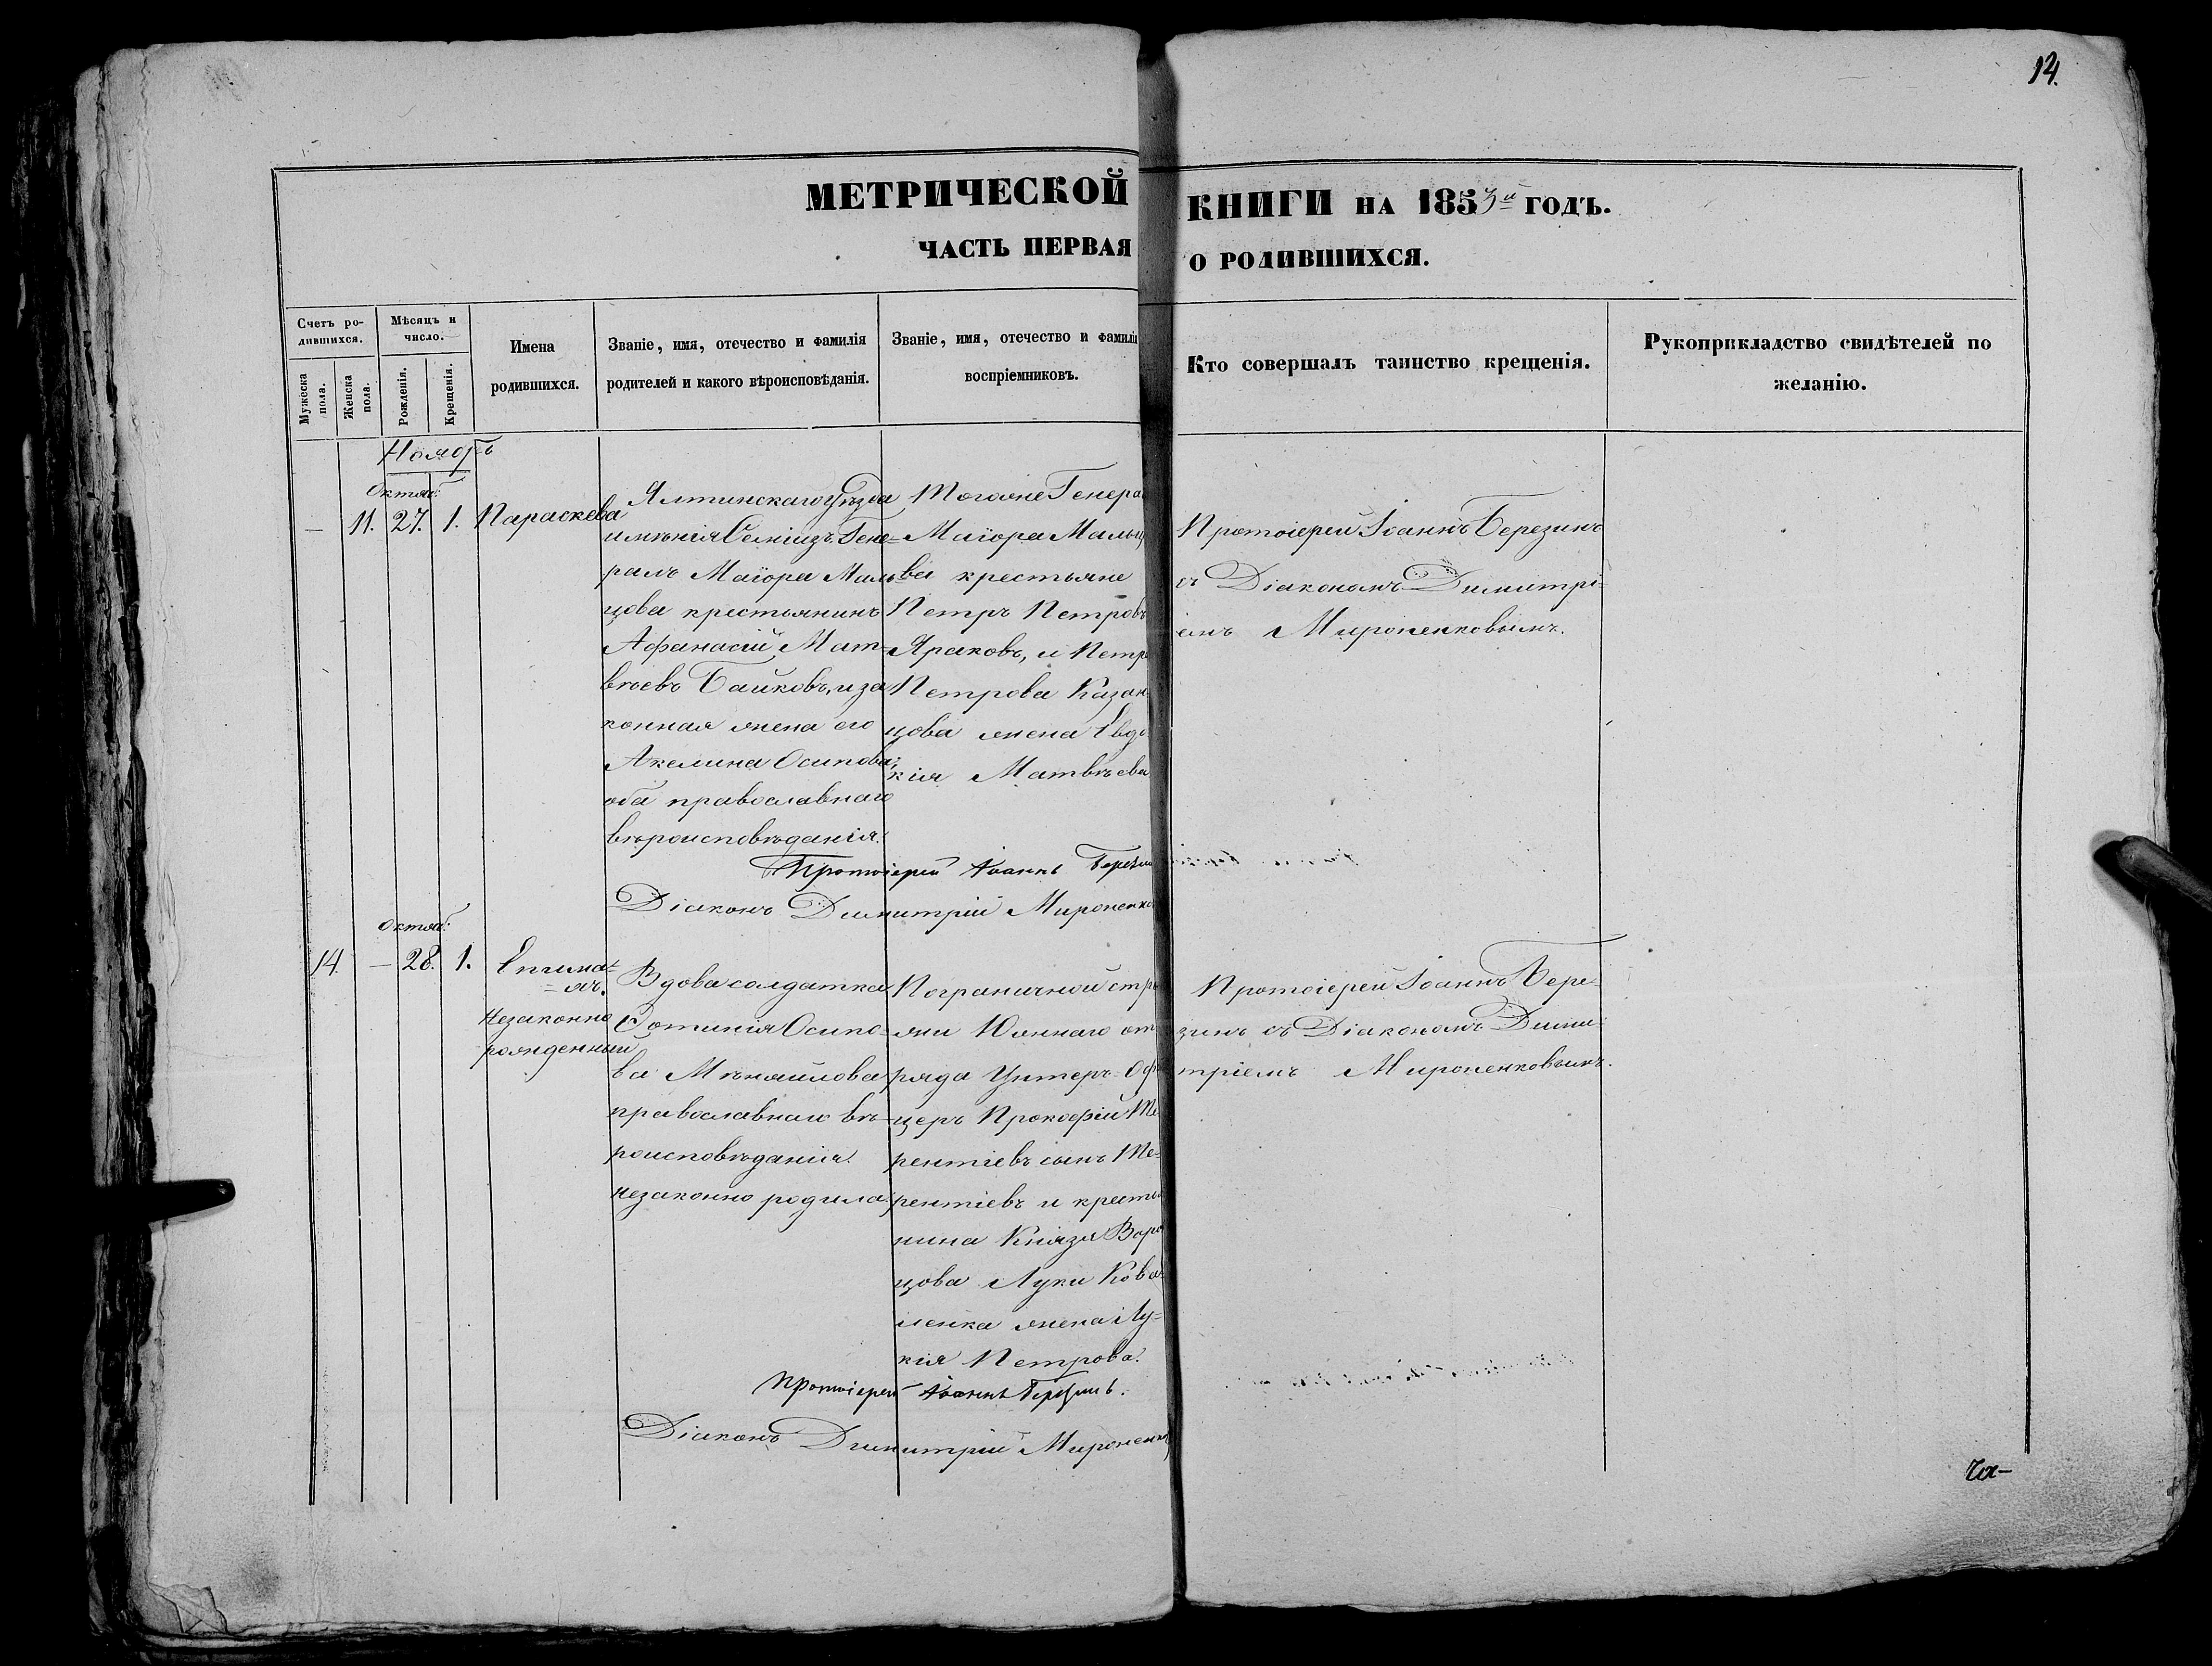 14.
МЕТРИЧЕСКОЙ КНИГИ НА 1853й ГОДЪ.
ЧАСТЬ ПЕРВАЯ О РОДИВШИХСЯ.
Счетъ ро-
дившихся.
Мужеска пола.
Женска пола.
Мѣсяцъ и
число.
Рожденія.
Крещенія.
Имена
родившихся.
Званіе, имя, отечество и фамилія
родителей и какого вѣроисповѣданія.
Званіе, имя, отечество и фамилія
воспріемниковъ.
Кто совершалъ таинство крещенія.
Рукоприкладство свидѣтелей по
желанію.
Ноябрь
Октяб:
— 11. 27. 1. Параскева
Ялтинскаго уѣзда
имѣнія Семіизъ Гене-
ралъ Маіора Маль-
цова крестьянинъ
Афанасій Мат-
вѣевъ Байковъ, и за
конная жена его
Акелина Осипова,
оба православнаго
вѣроисповѣданія.
Тогоже Генера
Маіора Мальц
ва крестьяне
Петръ Петровъ
Яраковъ, и Петр
Петрова Казан
цова жена Евдо
кія Матвѣева
Протоіерей Іоаннъ Березинъ
съ Діакономъ Димитрі-
емъ Мироненковымъ.
Протоіерей Іоаннъ Березин
Діаконъ Димитрій Мироненко
Октяб:
14. — 28. 1.
Незаконно
рожденный
Вдова солдатка
Фотинія Осипо-
ва Михайлова
православнаго вѣ-
роисповѣданія.
незаконно родила.
Пограничной стр
жи Южнаго от
ряда Унтеръ-Офи
церъ Прокофій Те
рентіевъ сынъ Те-
рентіевъ и крестья
нина Князя Воро
цова Луки Кова
ленка жена Лу-
кія Петрова.
Протоіерей Іоаннъ Бере-
зинъ съ Діакономъ Дими-
тріемъ Мироненковымъ.
Протоіерей Іоаннъ Березинъ.
Діаконъ Димитрій Мироненко